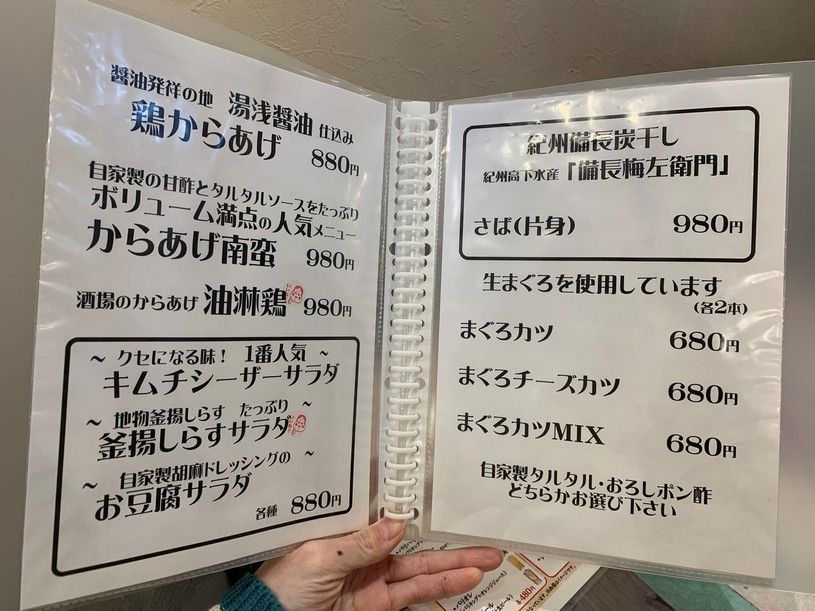 醤油発祥の地 湯浅醤油 仕込み
鶏からあげ 880円
自家製の甘酢とタルタルソースをたっぷり
ボリューム満点の人気メニュー
からあげ南蛮 980円
酒場のからあげ 油淋鶏 980円
～ クセになる味! 1番人気 ～
キムチシーザーサラダ
～ 地物釜揚しらす たっぷり ～
釜揚しらすサラダ
～ 自家製胡麻ドレッシングの ～
お豆腐サラダ
各種 880円
紀州備長炭干し
紀州高下水産「備長梅左衛門」
さば(片身) 980円
生まぐろを使用しています
(各2本)
まぐろカツ 680円
まぐろチーズカツ 680円
まぐろカツMIX 680円
自家製タルタル・おろしポン酢
どちらかお選び下さい
480円